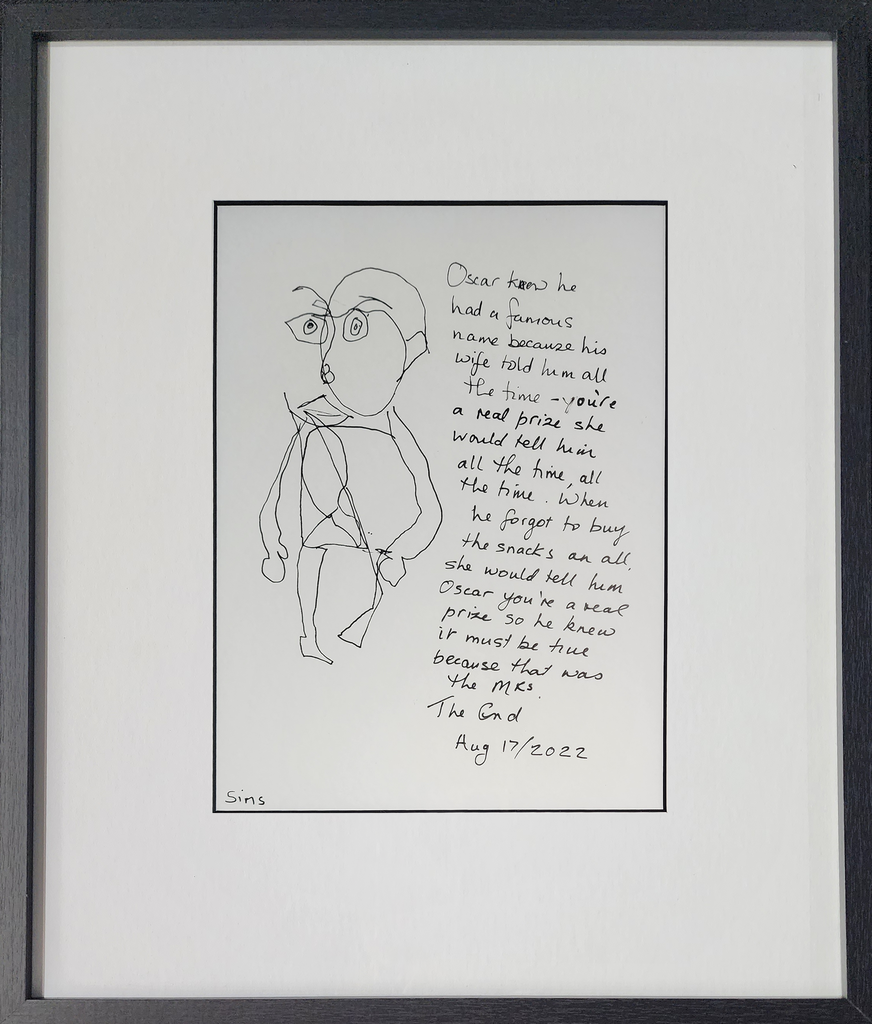 Oscar knew he
had a famous
name because his
wife told him all
the time - you're
a real prize she
would tell him
all the time, all
the time. When
he forgot to buy
the snacks an all,
she would tell him
Oscar you're a real
prize so he knew
it must be true
because that was
the MRS.
The End
Aug 17/2022
Sims